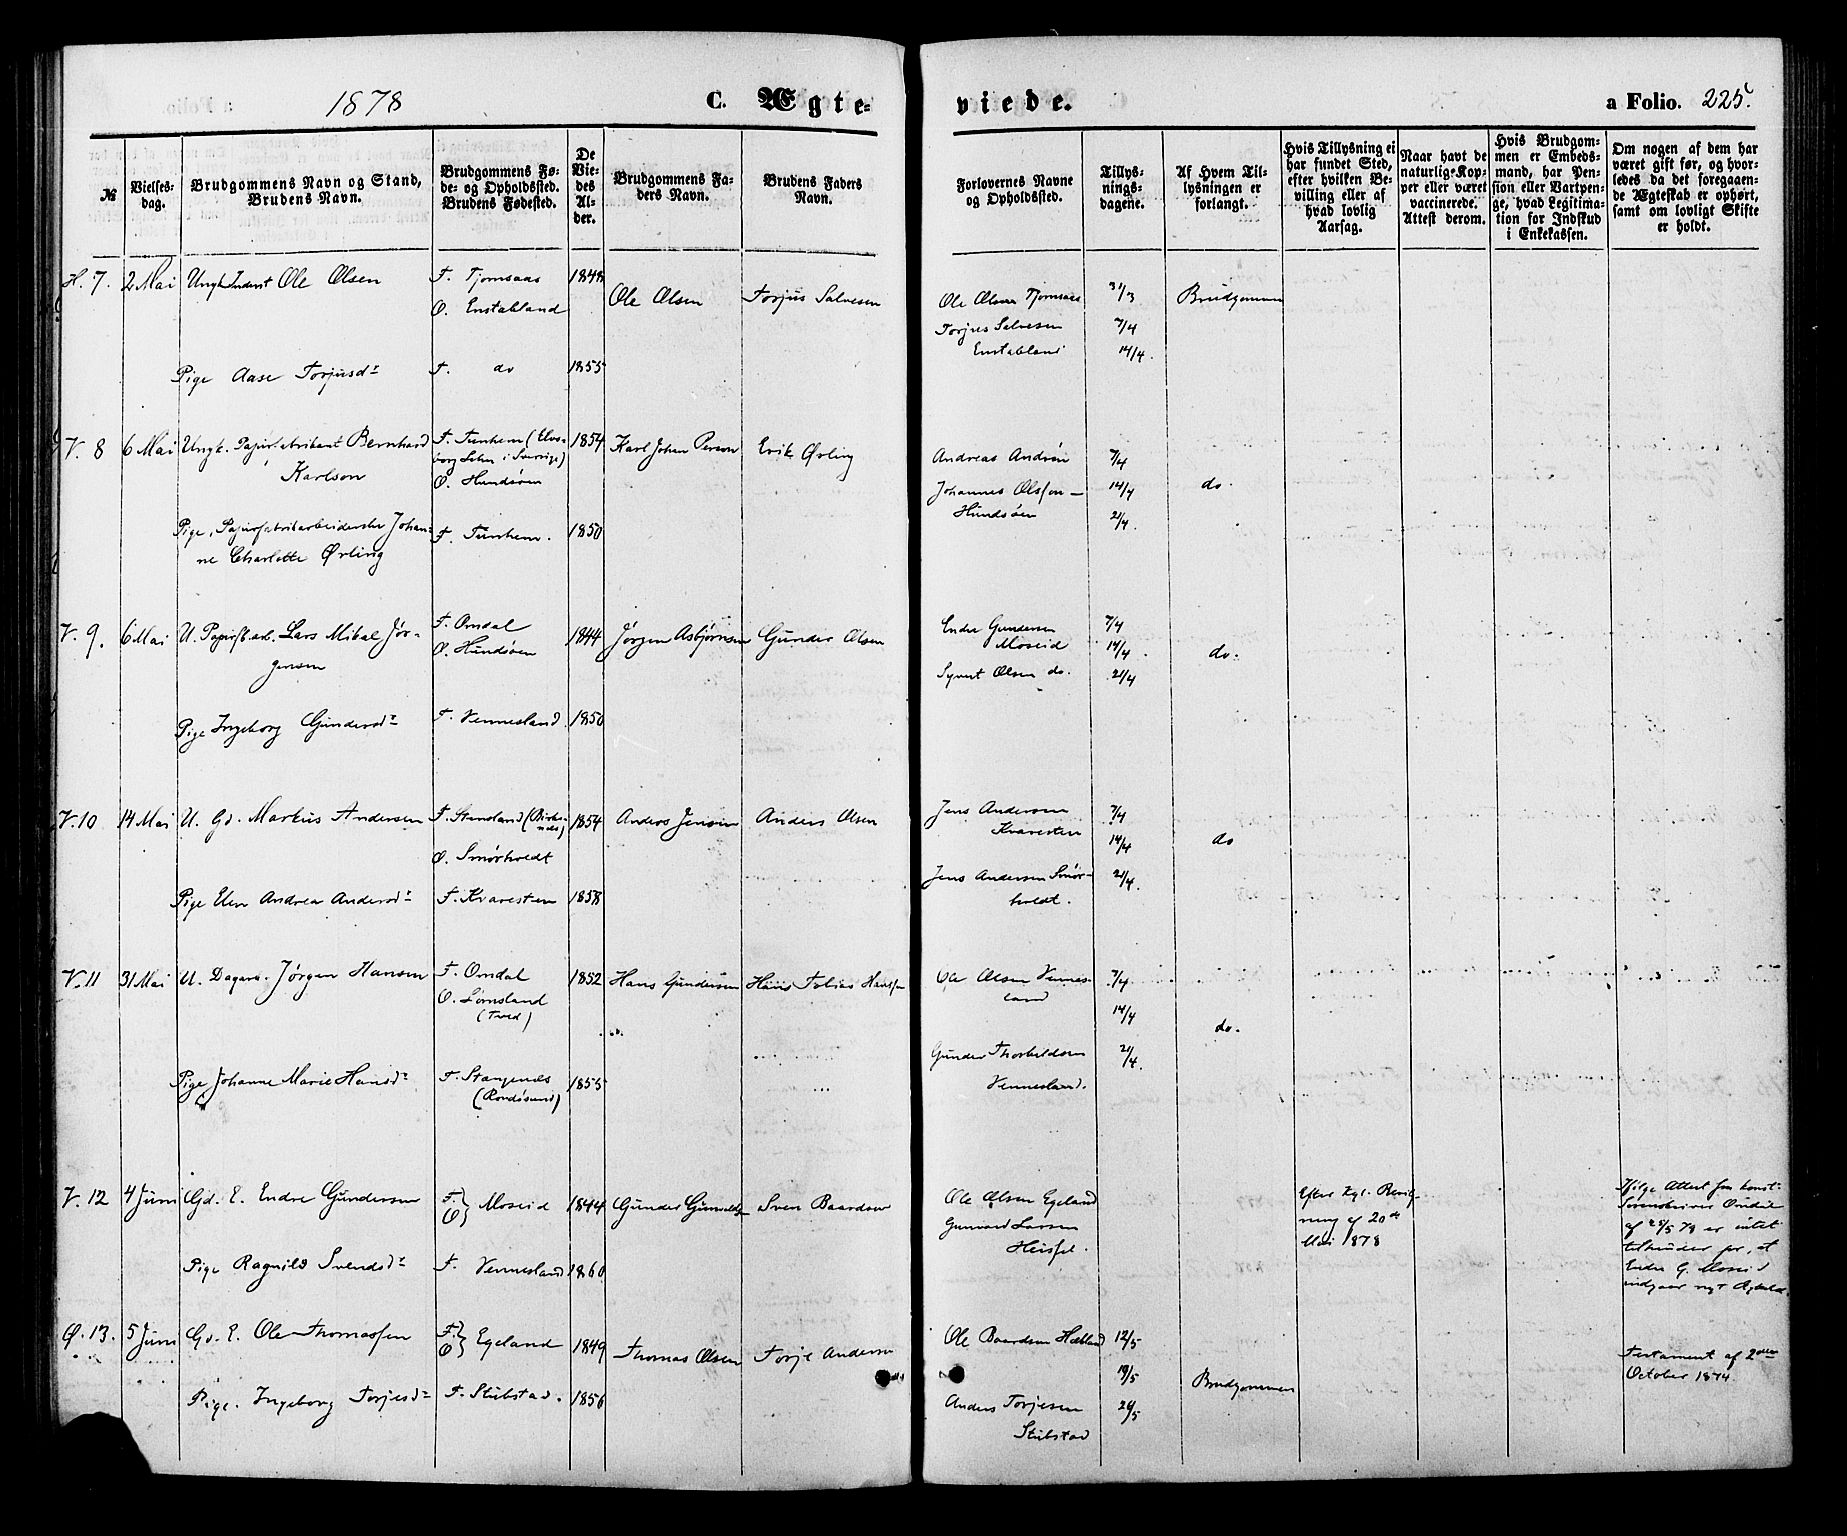 1878
C. Ægte-
viede.
a Folio. 225.
№
Vielses-
dag.
Brudgommens Navn og Stand,
Brudens Navn.
Brudgommens Fø-
de- og Opholdssted.
Brudens Fødested.
De
Vie-
des
Al-
der.
Brudgommens Fa-
ders Navn.
Brudens Faders
Navn.
Forlovernes Navne
og Opholdssted.
Tillys-
nings-
dagene.
Af Hvem Til-
lysningen er
forlangt.
Hvis Tillysning ei
har fundet Sted,
efter hvilken Be-
villing eller af
hvad lovlig
Aarsag.
Naar havt de
naturlige Kop-
per eller været
vaccinerede.
Attest derom.
Hvis Brudgom-
men er Embeds-
mand, har Pen-
sion eller Vartpen-
ge, hvad Legitima-
tion for Indskud
i Enkekassen.
Om nogen af dem har
været gift før, og hvor-
ledes da det foregaaen-
de Ægteskab er ophørt,
samt om lovligt Skifte
er holdt.
H. 7. 2 Mai Ungk. Inderst Ole Olsen F. Tjomsaas 1848 Ole Olsen Torjus Salvesen Ole Olsen Tjomsaas 31/3 Brudgommen
O. Enstabland Torjus Salvesen 7/4
Enstabland 14/4.
Pige Aase Torjusd<sup>r</sup> F. do 1855
V. 8 6 Mai Ungk. Papirfabrikant Bernhard F. Tunhem (Elvs- 1854 Karl Johan Person Erik Ørling Andreas Andrén 7/4
Karlson borg Lehn i Sverrige) Johannes Olsson 14/4 do.
O. Hundsøen Hundsøen 21/4.
Pige, Papirfabrikarbeiderske Johan-
ne Charlotte Ørling F. Tunhem. 1850
V. 9. 6 Mai U. Papirf.arb. Lars Mikal Jør- F. Omdal 1844 Jørgen Asbjørnsen Gunder Olsen Endre Gundersen 7/4
gensen O. Hundsøen Moseid 14/4. do.
Syvert Olsen do. 21/4
Pige Ingeborg Gundersd<sup>r</sup> F. Vennesland. 1850
V. 10 14 Mai U. Gd. Markus Andersen F. Stensland (Birke- 1854 Anders Jensen Anders Olsen Jens Andersen 7/4
næs) Kvaresten 14/4 do
O. Smørholdt Jens Andersen Smør- 21/4.
holdt.
Pige Andrea Andersd<sup>r</sup> F. Kvaresten 1858
V. 11 31 Mai U. Dagarb. Jørgen Hansen F. Omdal 1852 Hans Gundersen Hans Tobias Hansen Ole Olsen Vennes- 7/4
O. Lømsland land 14/4 do.
(Tved) Gunder Thorkeldsen 21/4.
Vennesland.
Pige Johanne Marie Hansd<sup>r</sup> F. Stangenæs 1855
(Randøsund)
V. 12 4 Juni Gd. E. Endre Gundersen F. O. } Moseid 1844 Gunder Gunvaldsen Sven Baardsen Ole Olsen Egeland Efter Kgl. Bevilg- Ifølge Attest fra const.
Gunvald Larsen ning af 20de Sorenskriver
Heisel. Mai 1878 af 28/5 78 er intet
tilhinder for, at
Pige Ragnild Svendsd<sup>r</sup> F. Vennesland 1860 Endre G. Moseid
indgaar nyt Ægteskab.
Ø. 13. 5 Juni Gd. E. Ole Thomassen F. O. } Egeland 1849 Thomas Olsen Torje Andersen Ole Baardsen 12/5 Testament af 2den
19/5 Brudgommen October 1874.
Pige. Ingeborg Torjesd<sup>r</sup> F. Stubstad. 1856 Anders Torjesen 26/5
Stubstad